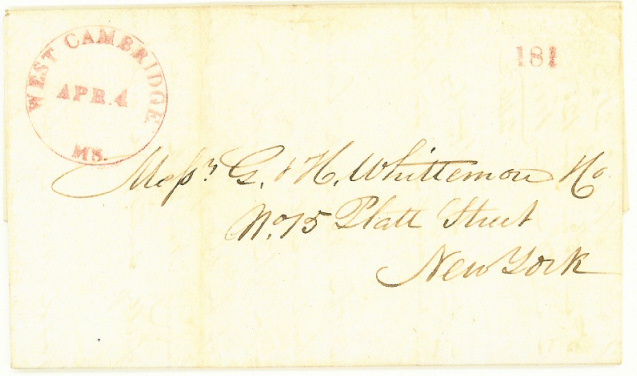 WEST CAMBRIDGE
APR. 4
MS.
181
Mess.rs G. & H. Whittemore
No. 75 Platt Street
New York